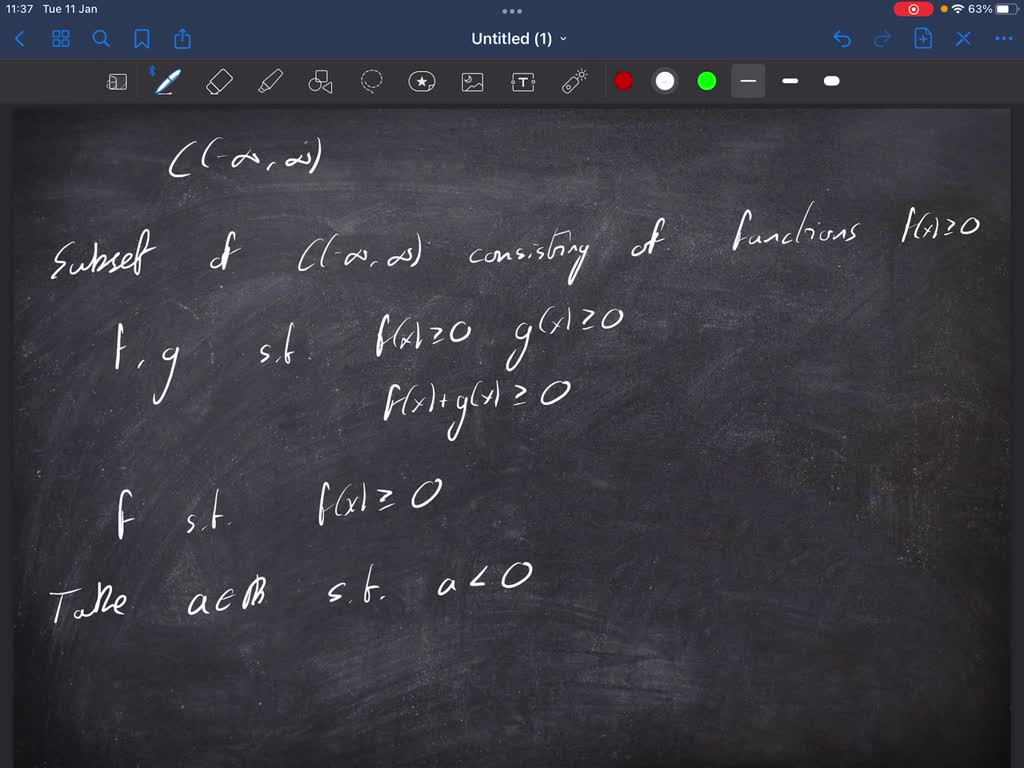 11:37 Tue 11 Jan 63%
Untitled (1)
T
C(-∞, ∞)
Subset of C(-∞, ∞) consisting of functions f(x) ≥ 0
f, g s.t. f(x) ≥ 0 g(x) ≥ 0
f(x) + g(x) ≥ 0
f s.t. f(x) ≥ 0
Take a ∈ ℝ s.t. a < 0